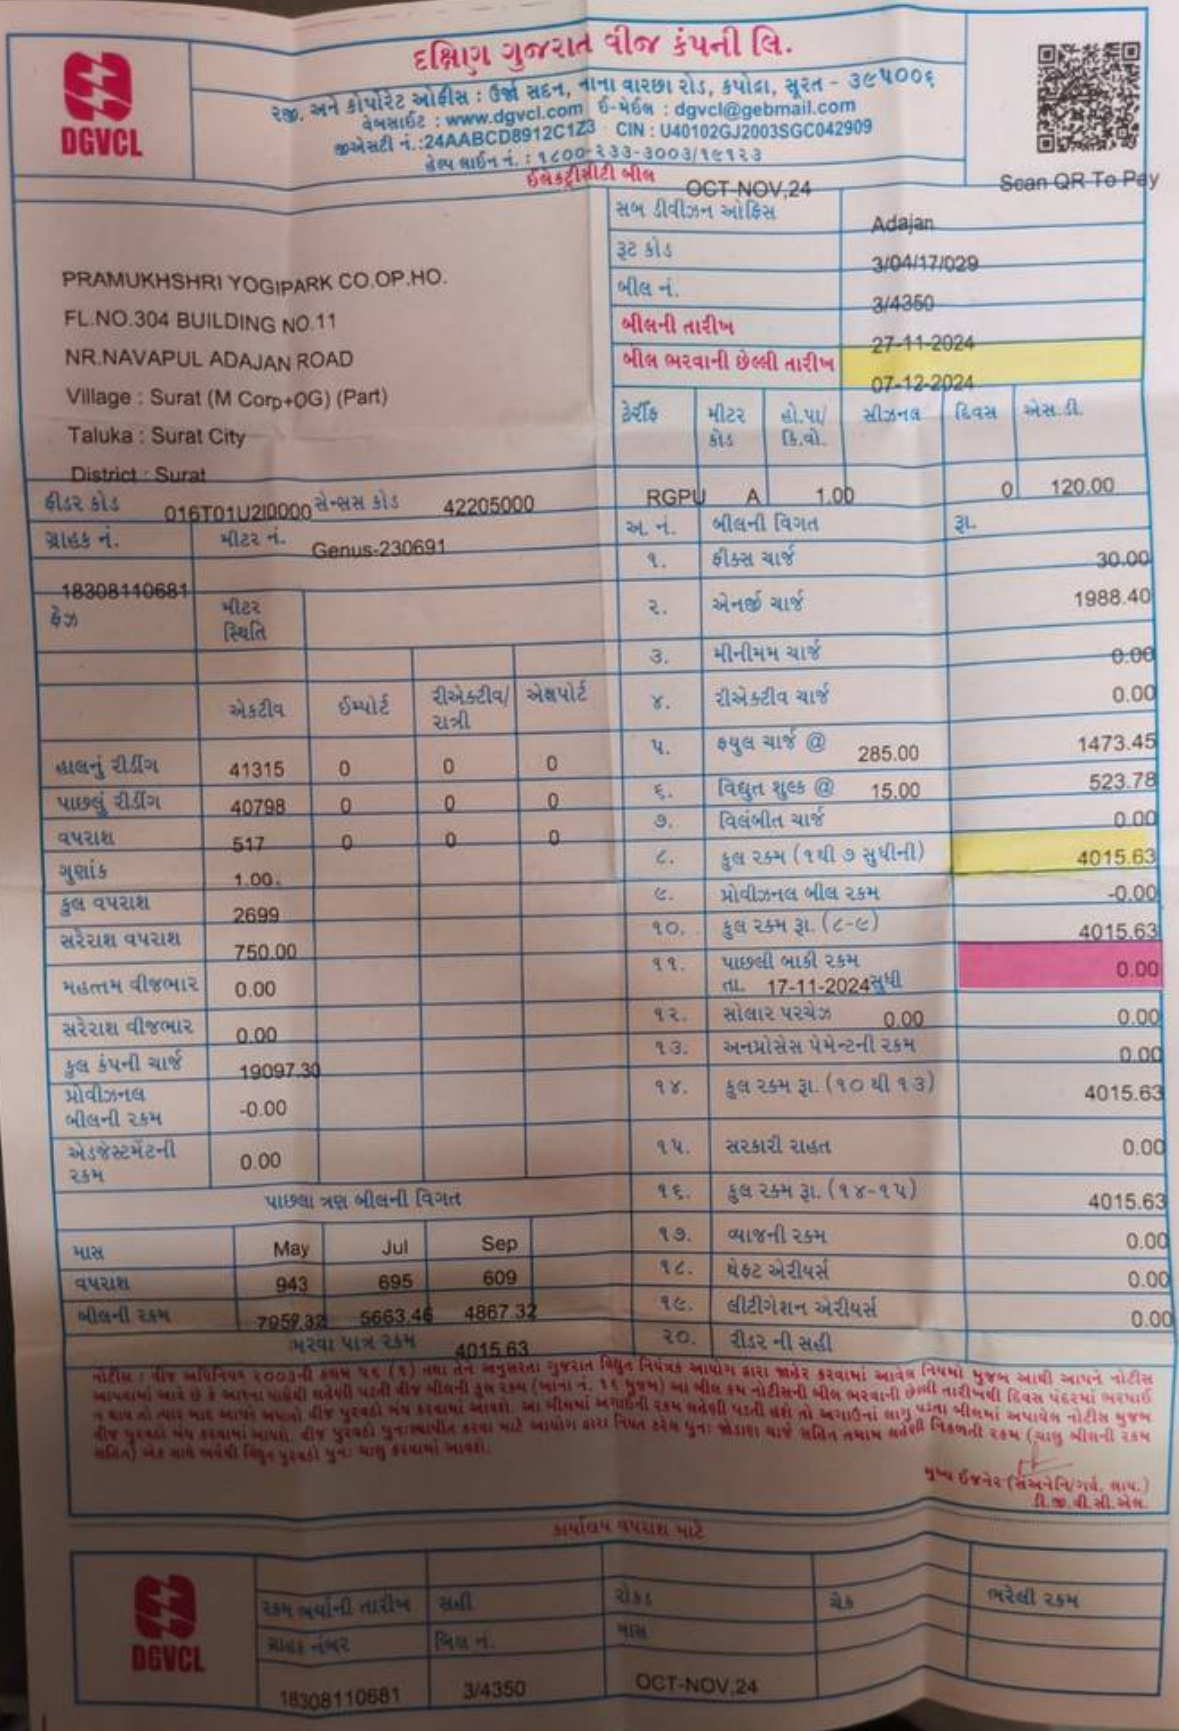 દક્ષિણ ગુજરાત વીજ કંપની લિ.
રજી. અને કોર્પોરેટ ઓફીસ : ઉર્જા સદન, નાના વારછા રોડ, કપોદ્રા, સુરત - ૩૯૫૦૦૬
વેબસાઈટ : www.dgvcl.com ઈ-મેઈલ : dgvcl@gebmail.com
જીએસટી નં.:24AABCD8912C1Z3 CIN : U40102GJ2003SGC042909
હેલ્પ લાઈન નં. : ૧૮૦૦-૨૩૩-3003/૧૯૧૨૩
DGVCL
ઈલેક્ટ્રીસીટી બીલ OCT-NOV,24
Scan QR To Pay
PRAMUKHSHRI YOGIPARK CO.OP.HO.
FL.NO.304 BUILDING NO.11
NR.NAVAPUL ADAJAN ROAD
Village : Surat (M Corp+OG) (Part)
Taluka : Surat City
District : Surat
સબ ડીવીઝન ઓફિસ Adajan
રૂટ કોડ 3/04/17/029
બીલ નં. 3/4350
બીલની તારીખ 27-11-2024
બીલ ભરવાની છેલ્લી તારીખ 07-12-2024
ફીડર કોડ 016T01U2I0000 સેન્સસ કોડ 42205000
ગ્રાહક નં. મીટર નં. Genus-230691
18308110681
ફેઝ મીટર સ્થિતિ
ટેરીફ મીટર કોડ હો.પા/ કિ.વો. સીઝનલ દિવસ એસ.ડી.
RGPU A 1.00 0 120.00
એક્ટીવ ઈમ્પોર્ટ રીએક્ટીવ/ રાત્રી એક્ષપોર્ટ
હાલનું રીડીંગ 41315 0 0 0
પાછલું રીડીંગ 40798 0 0 0
વપરાશ 517 0 0 0
ગુણાંક 1.00
કુલ વપરાશ 2699
સરેરાશ વપરાશ 750.00
મહત્તમ વીજભાર 0.00
સરેરાશ વીજભાર 0.00
કુલ કંપની ચાર્જ 19097.30
પ્રોવીઝનલ બીલની રકમ -0.00
એડજેસ્ટમેંટની રકમ 0.00
પાછલા ત્રણ બીલની વિગત
માસ May Jul Sep
વપરાશ 943 695 609
બીલની રકમ 7957.32 5663.46 4867.32
ભરવા પાત્ર રકમ 4015.63
અ. નં. બીલની વિગત રૂા.
૧. ફીક્સ ચાર્જ 30.00
૨. એનર્જી ચાર્જ 1988.40
૩. મીનીમમ ચાર્જ 0.00
૪. રીએક્ટીવ ચાર્જ 0.00
૫. ફયુલ ચાર્જ @ 285.00 1473.45
૬. વિદ્યુત શુલ્ક @ 15.00 523.78
૭. વિલંબીત ચાર્જ 0.00
૮. કુલ રકમ (૧થી ૭ સુધીની) 4015.63
૯. પ્રોવીઝનલ બીલ રકમ -0.00
૧૦. કુલ રકમ રૂા. (૮-૯) 4015.63
૧૧. પાછલી બાકી રકમ
તા. 17-11-2024સુધી 0.00
૧૨. સોલાર પરચેઝ 0.00 0.00
૧૩. અનપ્રોસેસ પેમેન્ટની રકમ 0.00
૧૪. કુલ રકમ રૂા. (૧૦ થી ૧૩) 4015.63
૧૫. સરકારી રાહત 0.00
૧૬. કુલ રકમ રૂા. (૧૪-૧૫) 4015.63
૧૭. વ્યાજની રકમ 0.00
૧૮. થેફ્ટ એરીયર્સ 0.00
૧૯. લીટીગેશન એરીયર્સ 0.00
૨૦. રીડર ની સહી
નોટીસ : વીજ અધિનિયમ ૨૦૦૩ની કલમ ૫૬ (૧) તથા તેને અનુસરતા ગુજરાત વિદ્યુત નિયંત્રક આયોગ દ્વારા જાહેર કરવામાં આવેલ નિયમો મુજબ આથી આપને નોટીસ
ડી.જી.વી.સી.એલ.
કાર્યાલય વપરાશ માટે
DGVCL
રકમ ભર્યાની તારીખ સહી રોકડ ચેક ભરેલી રકમ
ગ્રાહક નંબર બિલ નં. માસ
18308110681 3/4350 OCT-NOV,24